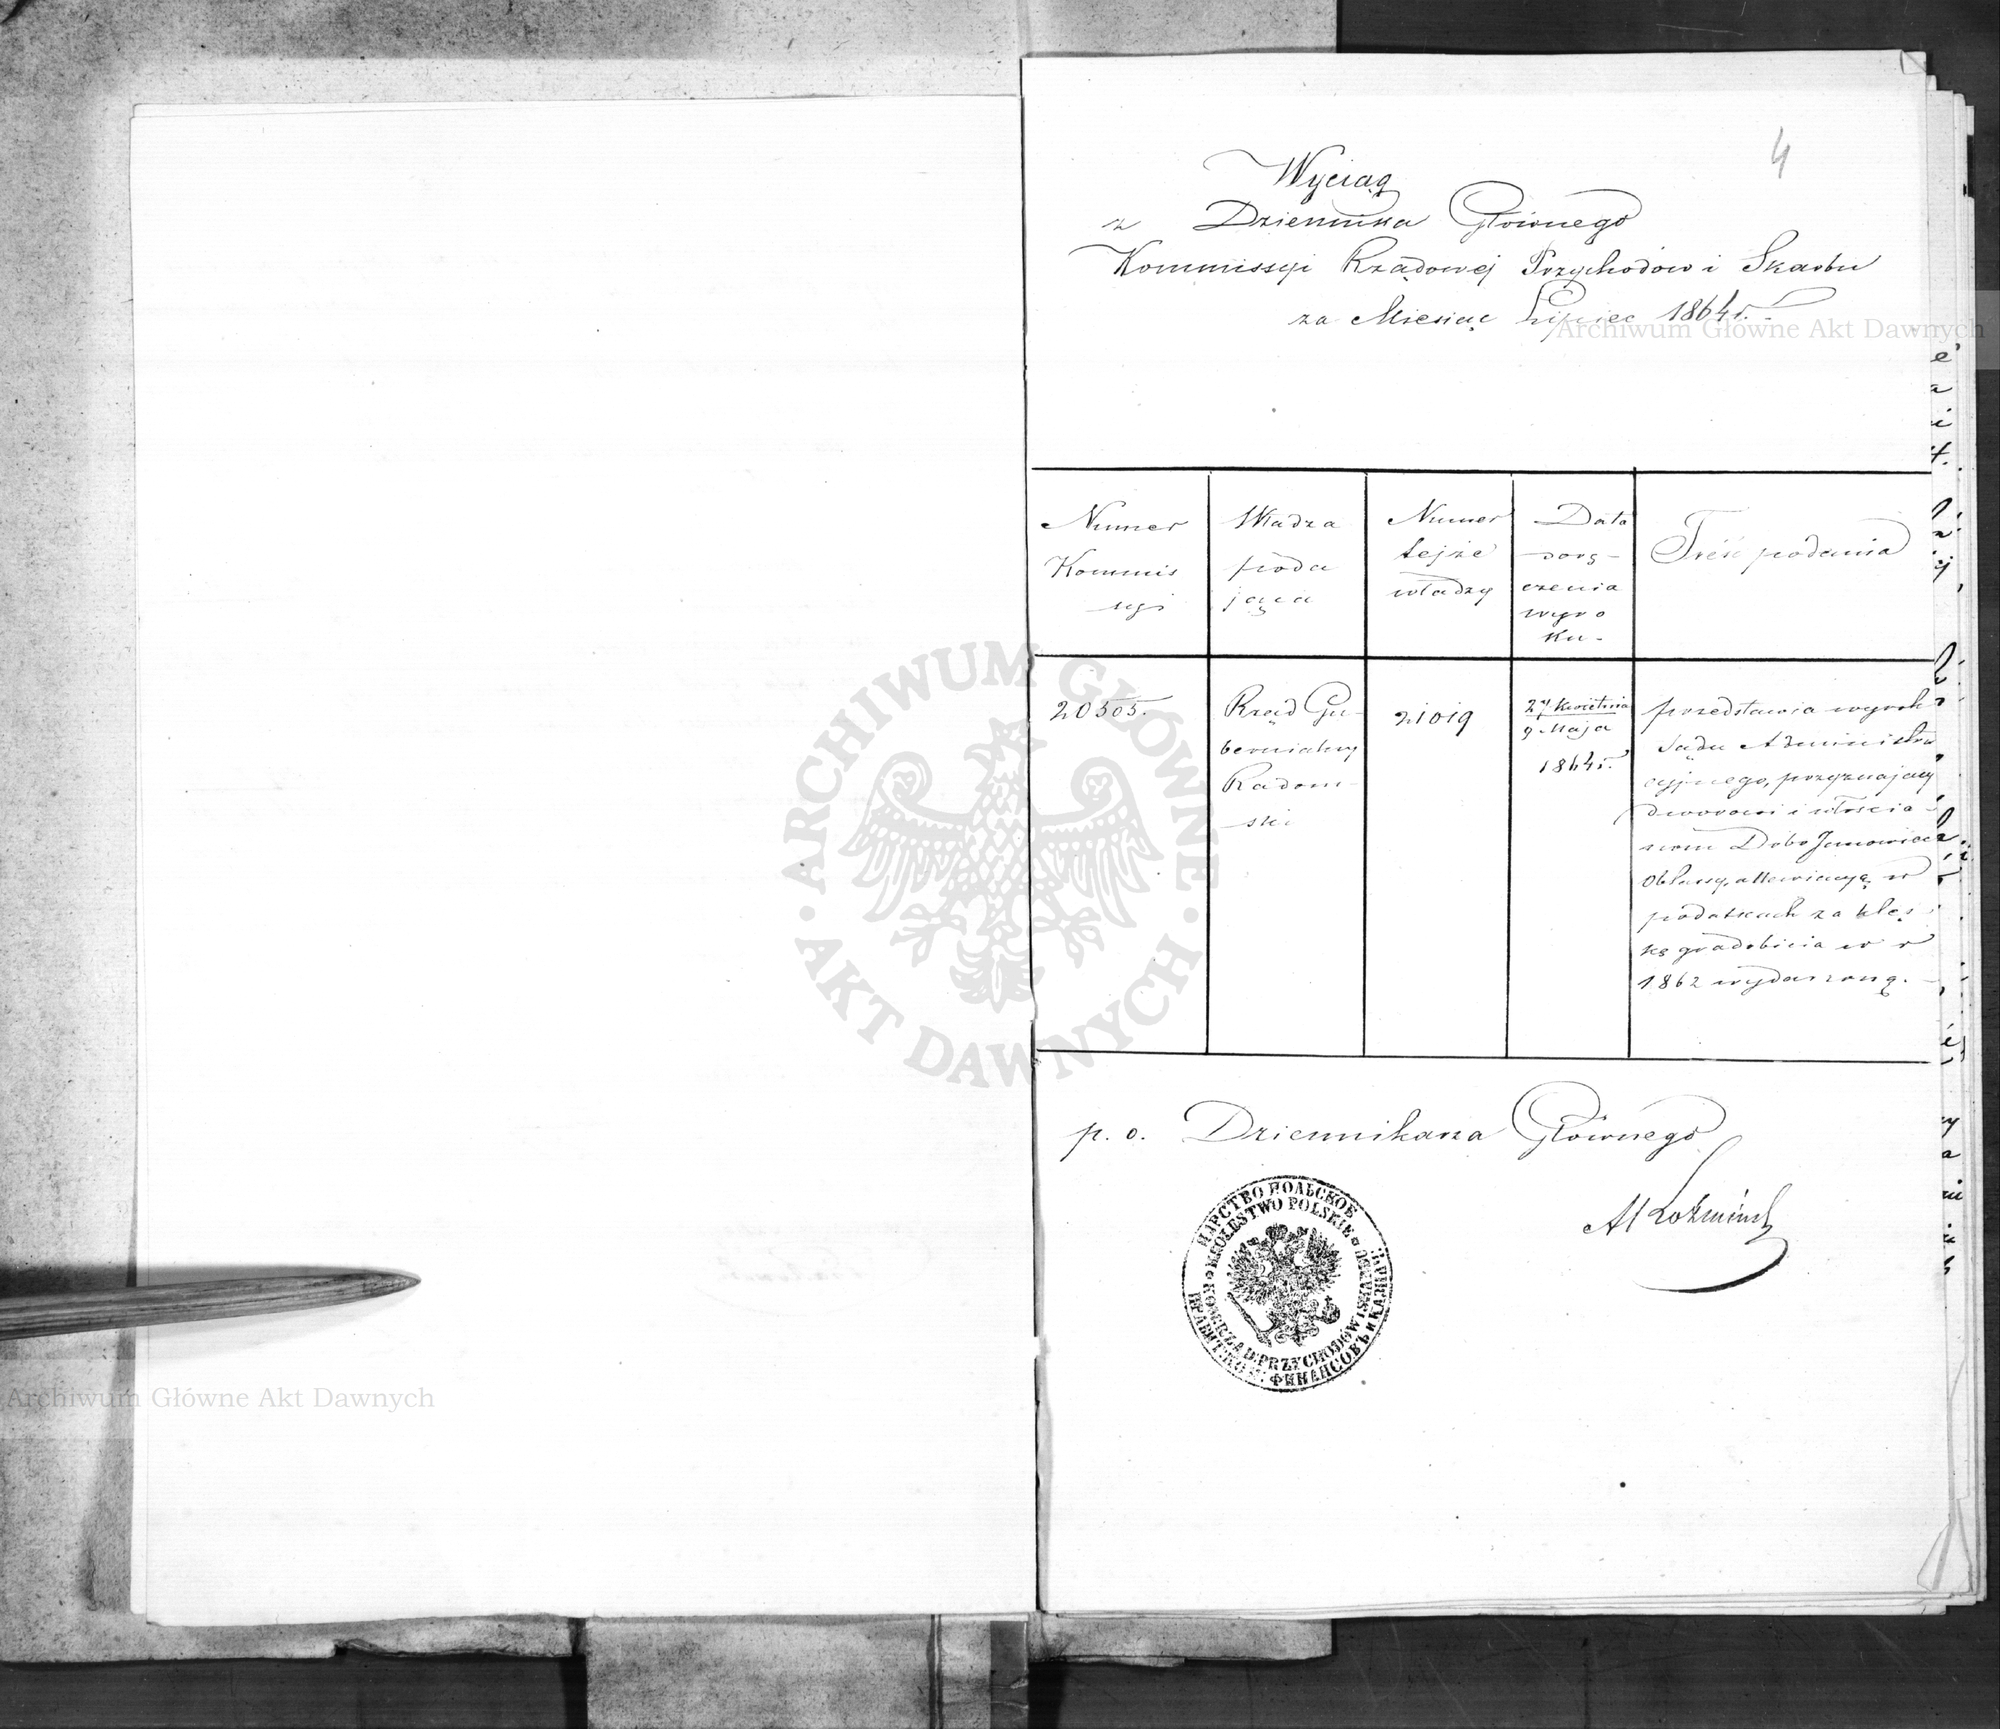 4
Wyciąg
z Dziennika Głównego
Kommissyi Rządowej Przychodów i Skarbu
za Miesiąc Lipiec 1864 r.
Numer
Kommis
syi
Władza
poda
jąca
Numer
tejże
władzy
Data
dorę-
czenia
wyro
ku-
Treść podania
20505.
Rząd Gu-
bernialny
Radom-
ski
21019
27 Kwietnia
9 Maja
1864 r.
przedstawia wyrok
Sądu Administra
cyjnego, przyznający
dworowi i włościa-
nom Dóbr Janowiec
Oblassy, allewiacyą w
podatkach za klęs
kę gradobicia w r
1862 wydarzoną.
p. o. Dziennikarza Głównego
ЦАРСТВО ПОЛЬСКОЕ
КРАВИТ. КОМ. ФИНАНСОВЪ И КАЗНАЧ.
KROLESTWO POLSKIE
KOMMIS: RZĄD: PRZYCHODÓW I SKARBU
ARCHIWUM GŁÓWNE
AKT DAWNYCH
Archiwum Główne Akt Dawnych
Archiwum Główne Akt Dawnych